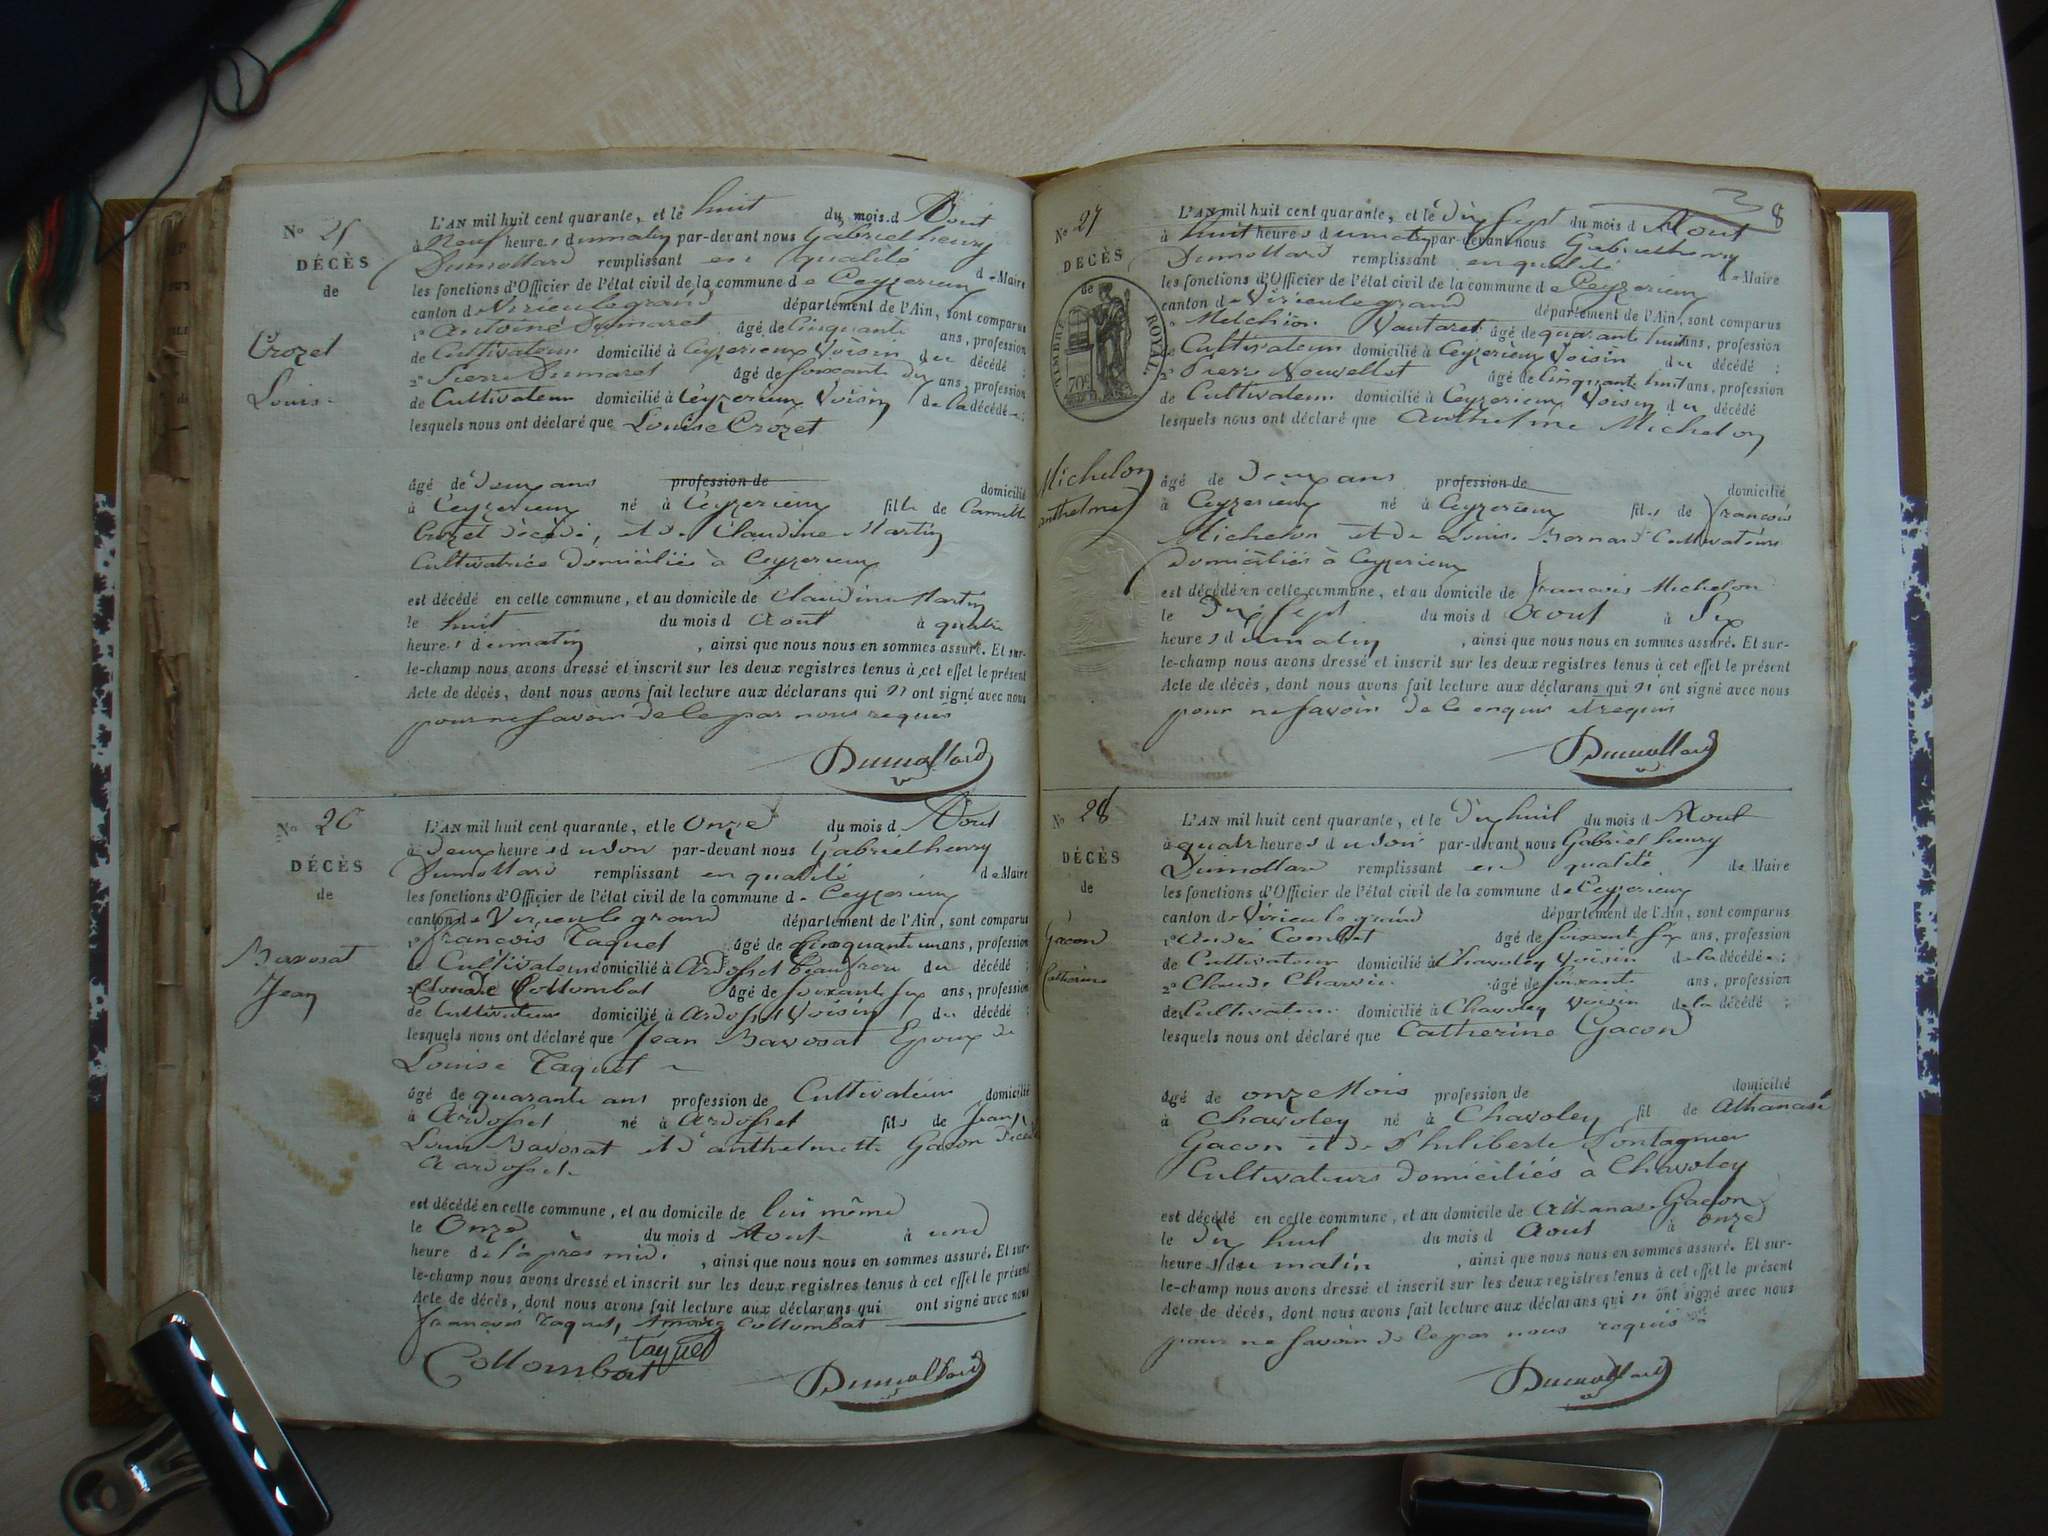 N° 25
DÉCÈS
de
Crozet
Louise
L'AN mil huit cent quarante, et le huit du mois d Aout
à Neuf heures du matin par-devant nous Gabriel henry
Dumollard remplissant en qualité de Maire
les fonctions d'Officier de l'état civil de la commune de Ceyzerieux
canton de Virieulegrand département de l'Ain, sont comparus
1° Antoine Dumaret âgé de Cinquante ans, profession
de Cultivateur domicilié à Ceyzerieux Voisin du décédé ;
2° Pierre Dumaret âgé de soixante dix ans, profession
de Cultivateur domicilié à Ceyzerieux Voisin de la décédée ;
lesquels nous ont déclaré que Louise Crozet
âgé de deux ans profession de domicilié
à Ceyzerieux né à Ceyzerieux fille de Camille
Crozet décédé, et de Claudine Martin
Cultivatrice domiciliée à Ceyzerieux
est décédé en cette commune, et au domicile de Claudine Martin
le huit du mois d Aout à quatre
heures du matin, ainsi que nous nous en sommes assuré. Et sur-
le-champ nous avons dressé et inscrit sur les deux registres tenus à cet effet le présent
Acte de décès, dont nous avons fait lecture aux déclarans qui n'ont signé avec nous
pour ne savoir de ce par nous requis
Dumollard
N° 26
DÉCÈS
de
Bavosat
Jean
L'AN mil huit cent quarante, et le Onze du mois d Aout
à Deux heures du soir par-devant nous Gabriel henry
Dumollard remplissant en qualité de Maire
les fonctions d'Officier de l'état civil de la commune de Ceyzerieux
canton de Virieu le grand département de l'Ain, sont comparus
1° françois Taquet âgé de Cinquante un ans, profession
de Cultivateur domicilié à Ardosset beaufrère du décédé ;
2° Claude Collombat âgé de soixante six ans, profession
de Cultivateur domicilié à Ardosset Voisin du décédé ;
lesquels nous ont déclaré que Jean Bavosat Epoux de
Louise Taquet
âgé de quarante ans profession de Cultivateur domicilié
à Ardosset né à Ardosset fils de Jean
Louis Bavosat et d'anthelmette Gacon
à ardosset
est décédé en cette commune, et au domicile de lui même
le Onze du mois d Aout à une
heure de l'après midi, ainsi que nous nous en sommes assuré. Et sur-
le-champ nous avons dressé et inscrit sur les deux registres tenus à cet effet le présent
Acte de décès, dont nous avons fait lecture aux déclarans qui ont signé avec nous
françois Taquet, Collombat
taquet
Collombat
Dumollard
8
N° 27
DÉCÈS
de
TIMBRE ROYAL
70c
Michelon
anthelme
L'AN mil huit cent quarante, et le Dix sept du mois d Aout
à huit heures du matin par-devant nous Gabriel henry
Dumollard remplissant en qualité de Maire
les fonctions d'Officier de l'état civil de la commune de Ceyzerieux
canton de Virieulegrand département de l'Ain, sont comparus
1° Melchior Vautaret âgé de quarante huit ans, profession
de Cultivateur domicilié à Ceyzerieux Voisin du décédé ;
2° Pierre Nouvellet âgé de Cinquante huit ans, profession
de Cultivateur domicilié à Ceyzerieux Voisin du décédé
lesquels nous ont déclaré que Anthelme Michelon
âgé de deux ans profession de domicilié
à Ceyzerieux né à Ceyzerieux fils de françois
Michelon et de Louise Bornard Cultivateurs
domiciliés à Ceyzerieux
est décédé en cette commune, et au domicile de françois Michelon
le Dix sept du mois d Aout à Six
heures du matin, ainsi que nous nous en sommes assuré. Et sur-
le-champ nous avons dressé et inscrit sur les deux registres tenus à cet effet le présent
Acte de décès, dont nous avons fait lecture aux déclarans qui n'ont signé avec nous
pour ne savoir de ce enquis et requis
Dumollard
N° 28
DÉCÈS
de
Gacon
Catherine
L'AN mil huit cent quarante, et le Dix huit du mois d Aout
à quatre heures du soir par-devant nous Gabriel henry
Dumollard remplissant en qualité de Maire
les fonctions d'Officier de l'état civil de la commune de Ceyzerieux
canton de Virieu le grand département de l'Ain, sont comparus
1° André Combet âgé de soixante six ans, profession
de Cultivateur domicilié à Chavoley Voisin de la décédée ;
2° Claude Charvin âgé de soixante ans, profession
de Cultivateur domicilié à Chavoley Voisin de la décédé ;
lesquels nous ont déclaré que Catherine Gacon
âgé de onze Mois profession de domicilié
à Chavoley né à Chavoley fil de Athanase
Gacon et de Philiberte Pontagnier
Cultivateurs domiciliés à Chavoley
est décédé en cette commune, et au domicile de Athanase Gacon
le Dix huit du mois d Aout à onze
heures du matin, ainsi que nous nous en sommes assuré. Et sur-
le-champ nous avons dressé et inscrit sur les deux registres tenus à cet effet le présent
Acte de décès, dont nous avons fait lecture aux déclarans qui n'ont signé avec nous
pour ne savoir de ce par nous requis
Dumollard